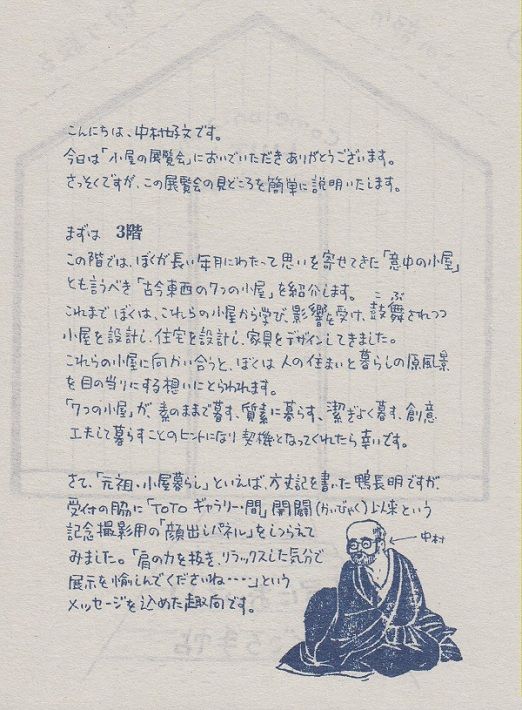 こんにちは、中村好文です。
今日は「小屋の展覧会」においでいただきありがとうございます。
さっそくですが、この展覧会の見どころを簡単に説明いたします。
まずは 3階
この階では、ぼくが長い年月にわたって思いを寄せてきた「意中の小屋」
とも言うべき「古今東西の7つの小屋」を紹介します。
これまで ぼくは、これらの小屋から学び、影響を受け、鼓舞されつつ
こぶ
小屋を設計し、住宅を設計し、家具をデザインしてきました。
これらの小屋に向かい合うと、ぼくは 人の住まいと暮らしの原風景
を目の当りにする想いにとらわれます。
「7つの小屋」が、素のままで暮す、質素に暮らす、潔ぎよく暮す、創意
工夫して暮らすことのヒントになり 契機となってくれたら幸いです。
さて、「元祖・小屋暮らし」といえば、方丈記を書いた鴨長明ですが、
受付の脇に「TOTO ギャラリー・間」開闢(かいびゃく)以来という
記念撮影用の「顔出しパネル」をしつらえて
みました。「肩の力を抜き、リラックスした気分で
展示を愉しんでくださいね・・・・」という
メッセージを込めた趣向です。
←中村